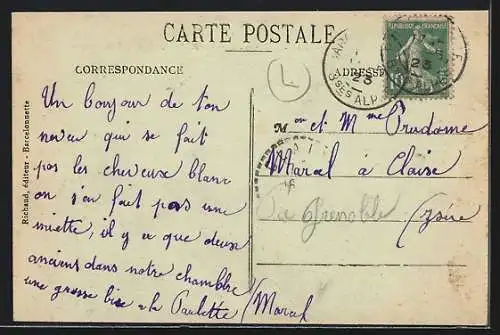 CARTE POSTALE
CORRESPONDANCE
ADRESSE
Un bonjour de ton
neveu qui se fait
pas les cheveux blanc
on s'en fait pas une
miette, il y a que deux
anciens dans notre chambre
une grosse bise à la Paulette
Maral
Mr et Mme Prudome
Maral à Claise
Grenoble
(Isère)
Richaud, éditeur - Barcelonnette
REPUBLIQUE FRANÇAISE
ses ALP